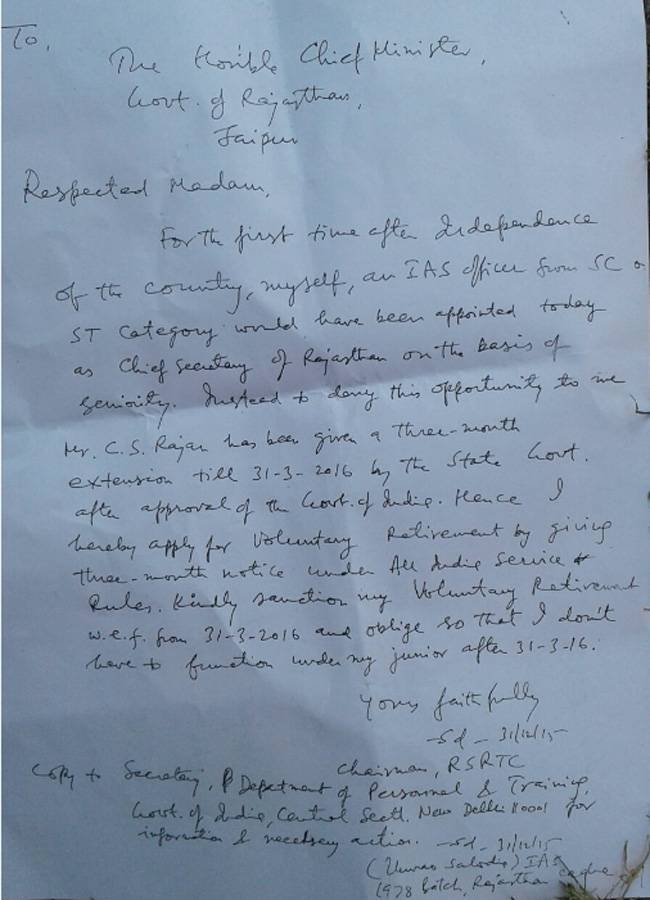 To,
The Hon'ble Chief Minister,
Govt. of Rajasthan,
Jaipur
Respected Madam,
For the first time after Independence
of the country, myself, an IAS officer from SC or
ST category would have been appointed today
as Chief Secretary of Rajasthan on the basis of
seniority. Instead to deny this opportunity to me
Mr. C.S. Rajan has been given a three-month
extension till 31-3-2016 by the State Govt.
after approval of the Govt. of India. Hence I
hereby apply for Voluntary Retirement by giving
three-month notice under All India Service
Rules. Kindly sanction my Voluntary Retirement
w.e.f. from 31-3-2016 and oblige so that I don't
have to function under my junior after 31-3-16.
Yours faithfully
-Sd- 31/12/15
Chairman, RSRTC
Copy to Secretary, Department of Personnel & Training,
Govt. of India, Central Sectt. New Delhi 110001 for
information & necessary action. -Sd- 31/12/15
(Umrao Salodia) IAS
1978 Batch, Rajasthan cadre